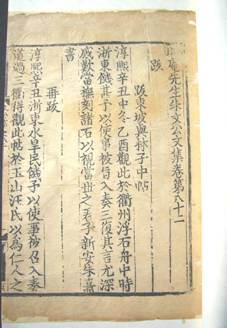 晦庵先生朱文公文集卷第八十二
跋
跋東坡與林子中帖
淳熙辛丑中冬乙酉觀此於衢州浮石舟中時
浙東饑其予以使事被旨入奏三復其言尤深
感歎當撫刻諸石以視當世之君子新安朱熹
書
再跋
淳熙辛丑浙東水旱民饑予以使事被召入奏
道過三衢得觀此帖於玉山汪氏以為仁人之